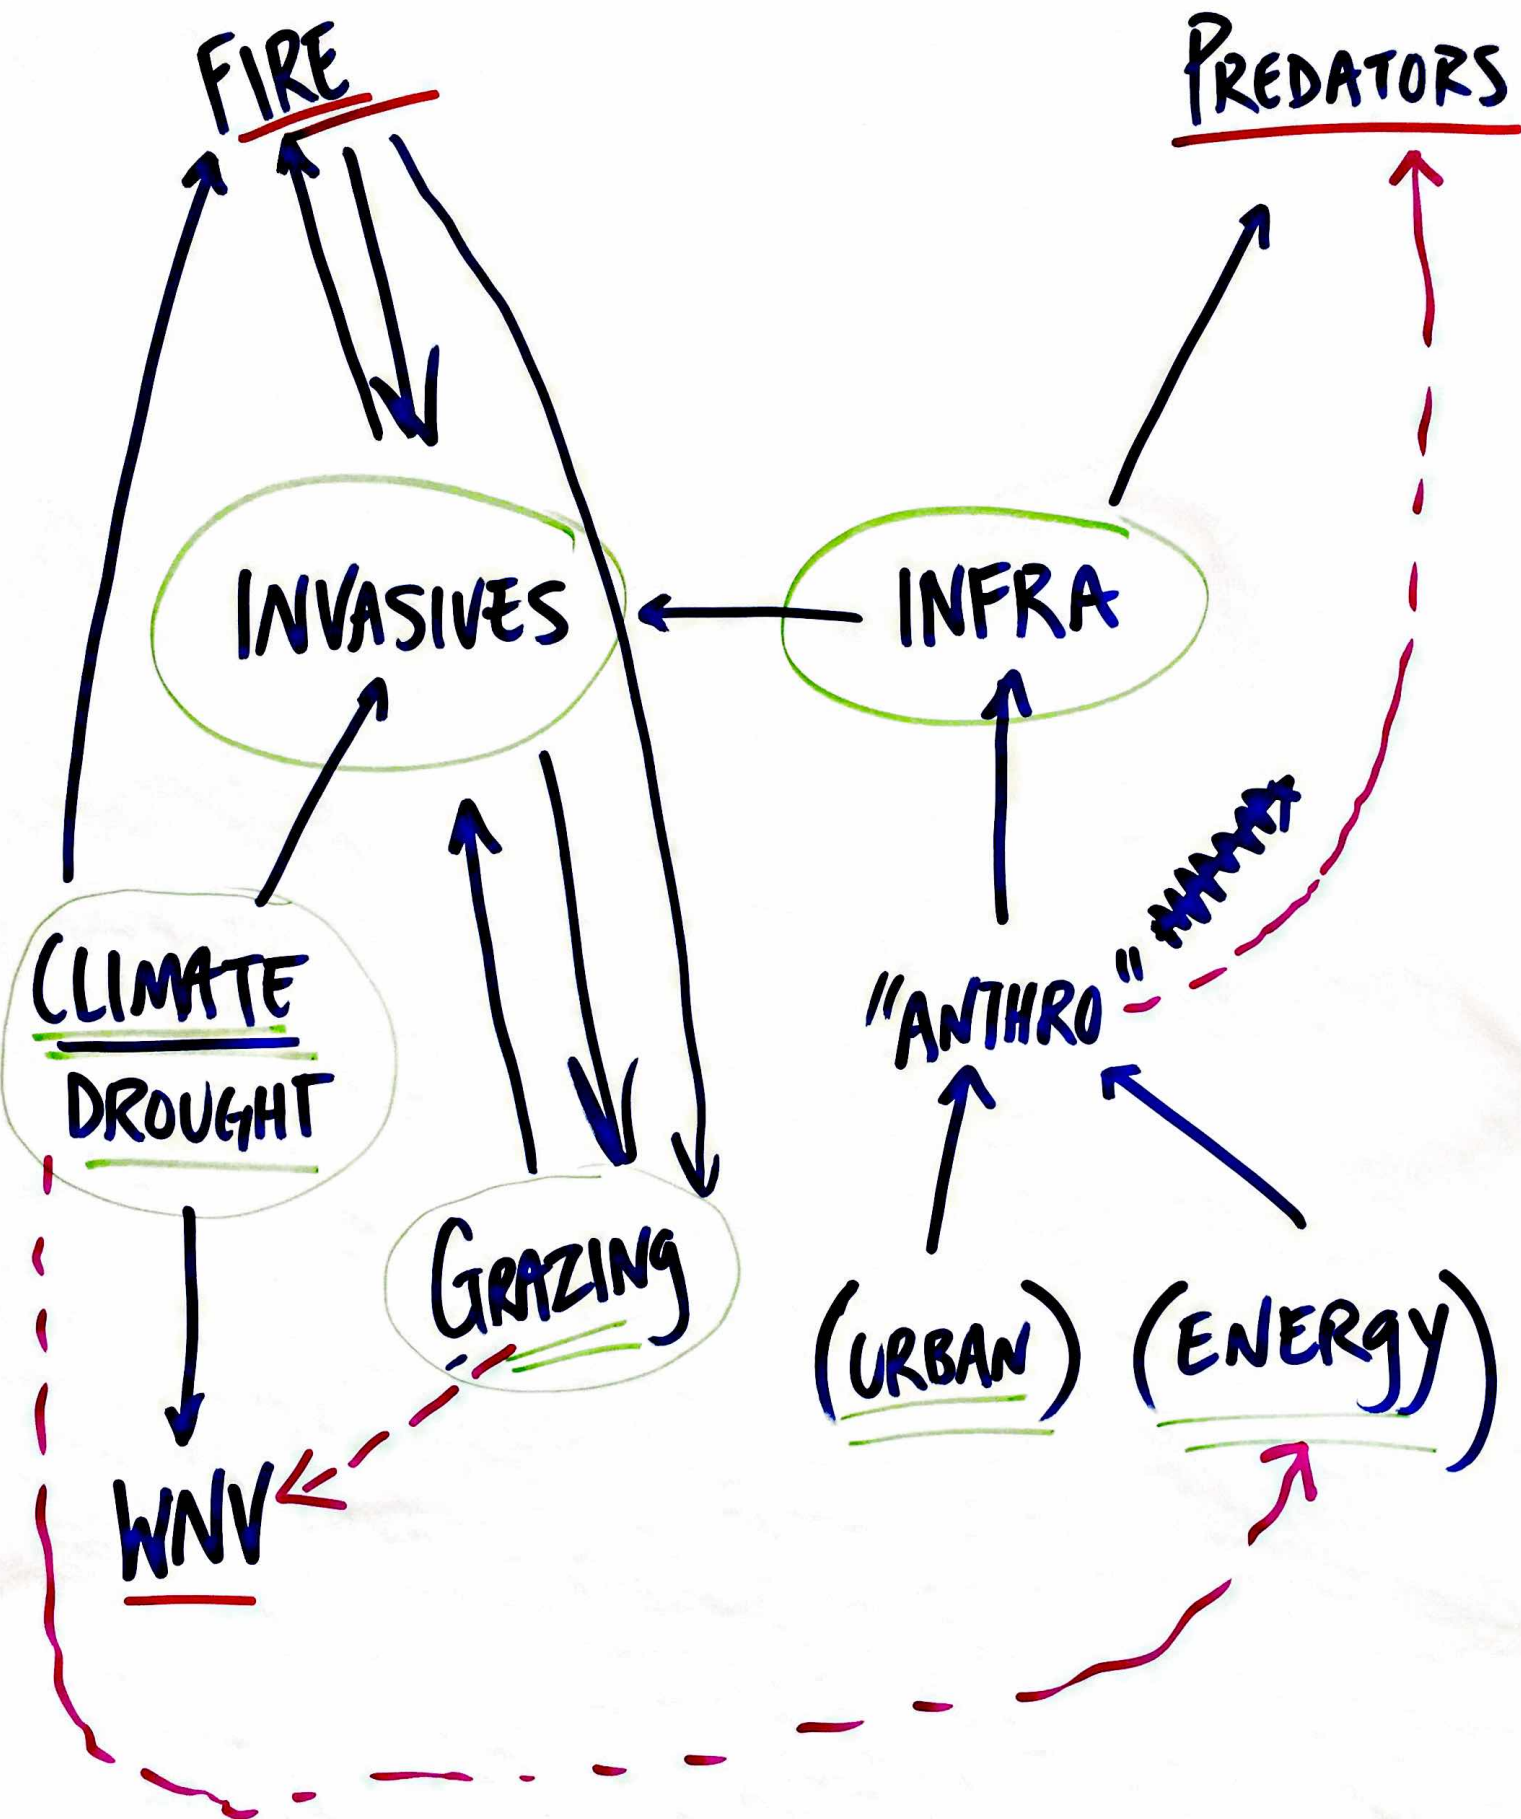 FIRE
PREDATORS
INVASIVES
INFRA
CLIMATE
DROUGHT
"ANTHRO"
GRAZING
(URBAN)
(ENERGY)
WNV